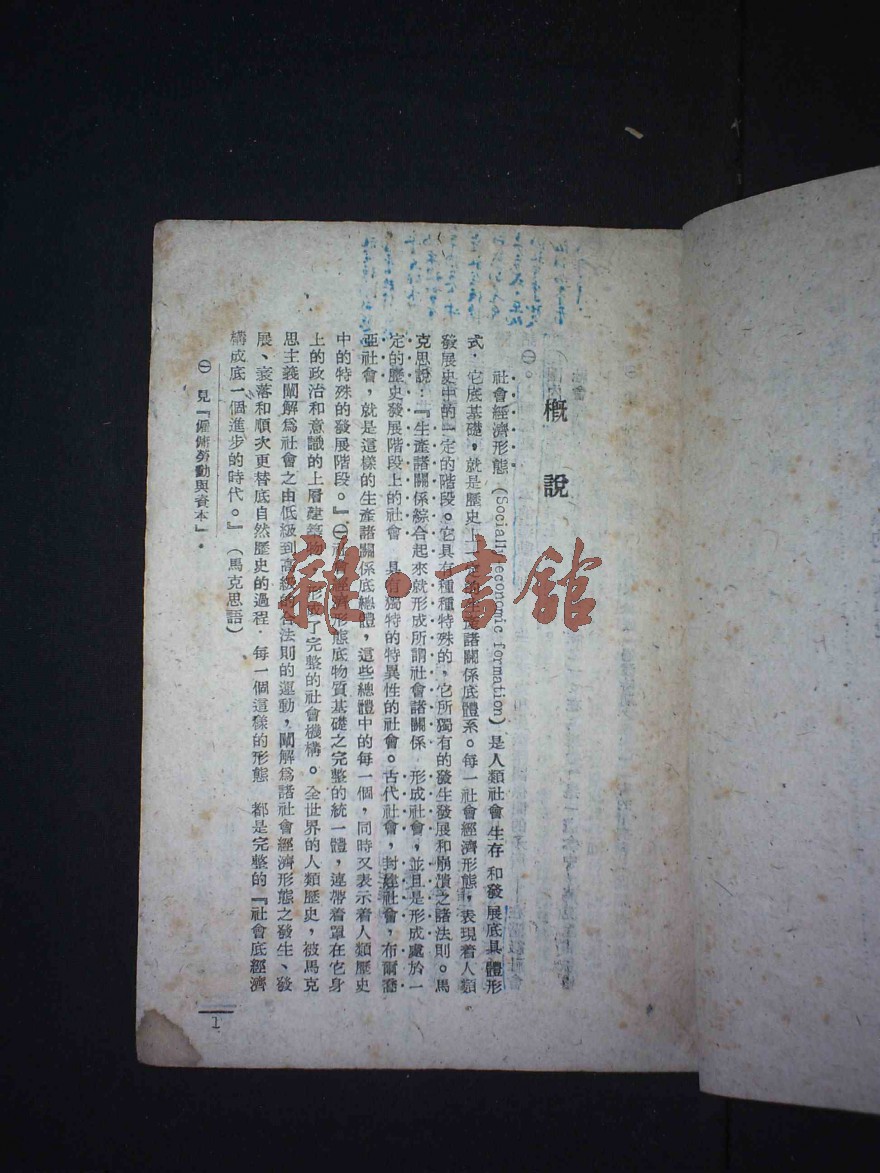 概說
社會經濟形態（Socially economic formation）是人類社會生存和發展底具體形
式．它底基礎，就是歷史上一定的生產諸關係底體系。每一社會經濟形態，表現着人類
發展史中的一定的階段。它具有種種特殊的，它所獨有的發生發展和崩潰之諸法則。馬
克思說：『生產諸關係綜合起來就形成所謂社會諸關係 形成社會，並且是形成處於一
定的歷史發展階段上的社會 具有獨特的特異性的社會。古代社會，封建社會，布爾喬
亞社會，就是這樣的生產諸關係底總體，這些總體中的每一個，同時又表示着人類歷史
中的特殊的發展階段。』㊀社會經濟形態底物质基礎之完整的統一體，連帶着罩在它身
上的政治和意識的上層建築物，形成了完整的社會機構。全世界的人類歷史，被馬克
思主義闡解爲社會之由低級到高級的合法則的運動，闡解爲諸社會經濟形態之發生、發
展、衰落和順次更替底自然歷史的過程．每一個這樣的形態 都是完整的『社會底經濟
構成底一個進步的時代。』（馬克思語）
㊀ 見『僱傭勞動與資本』．
1
雜·書館